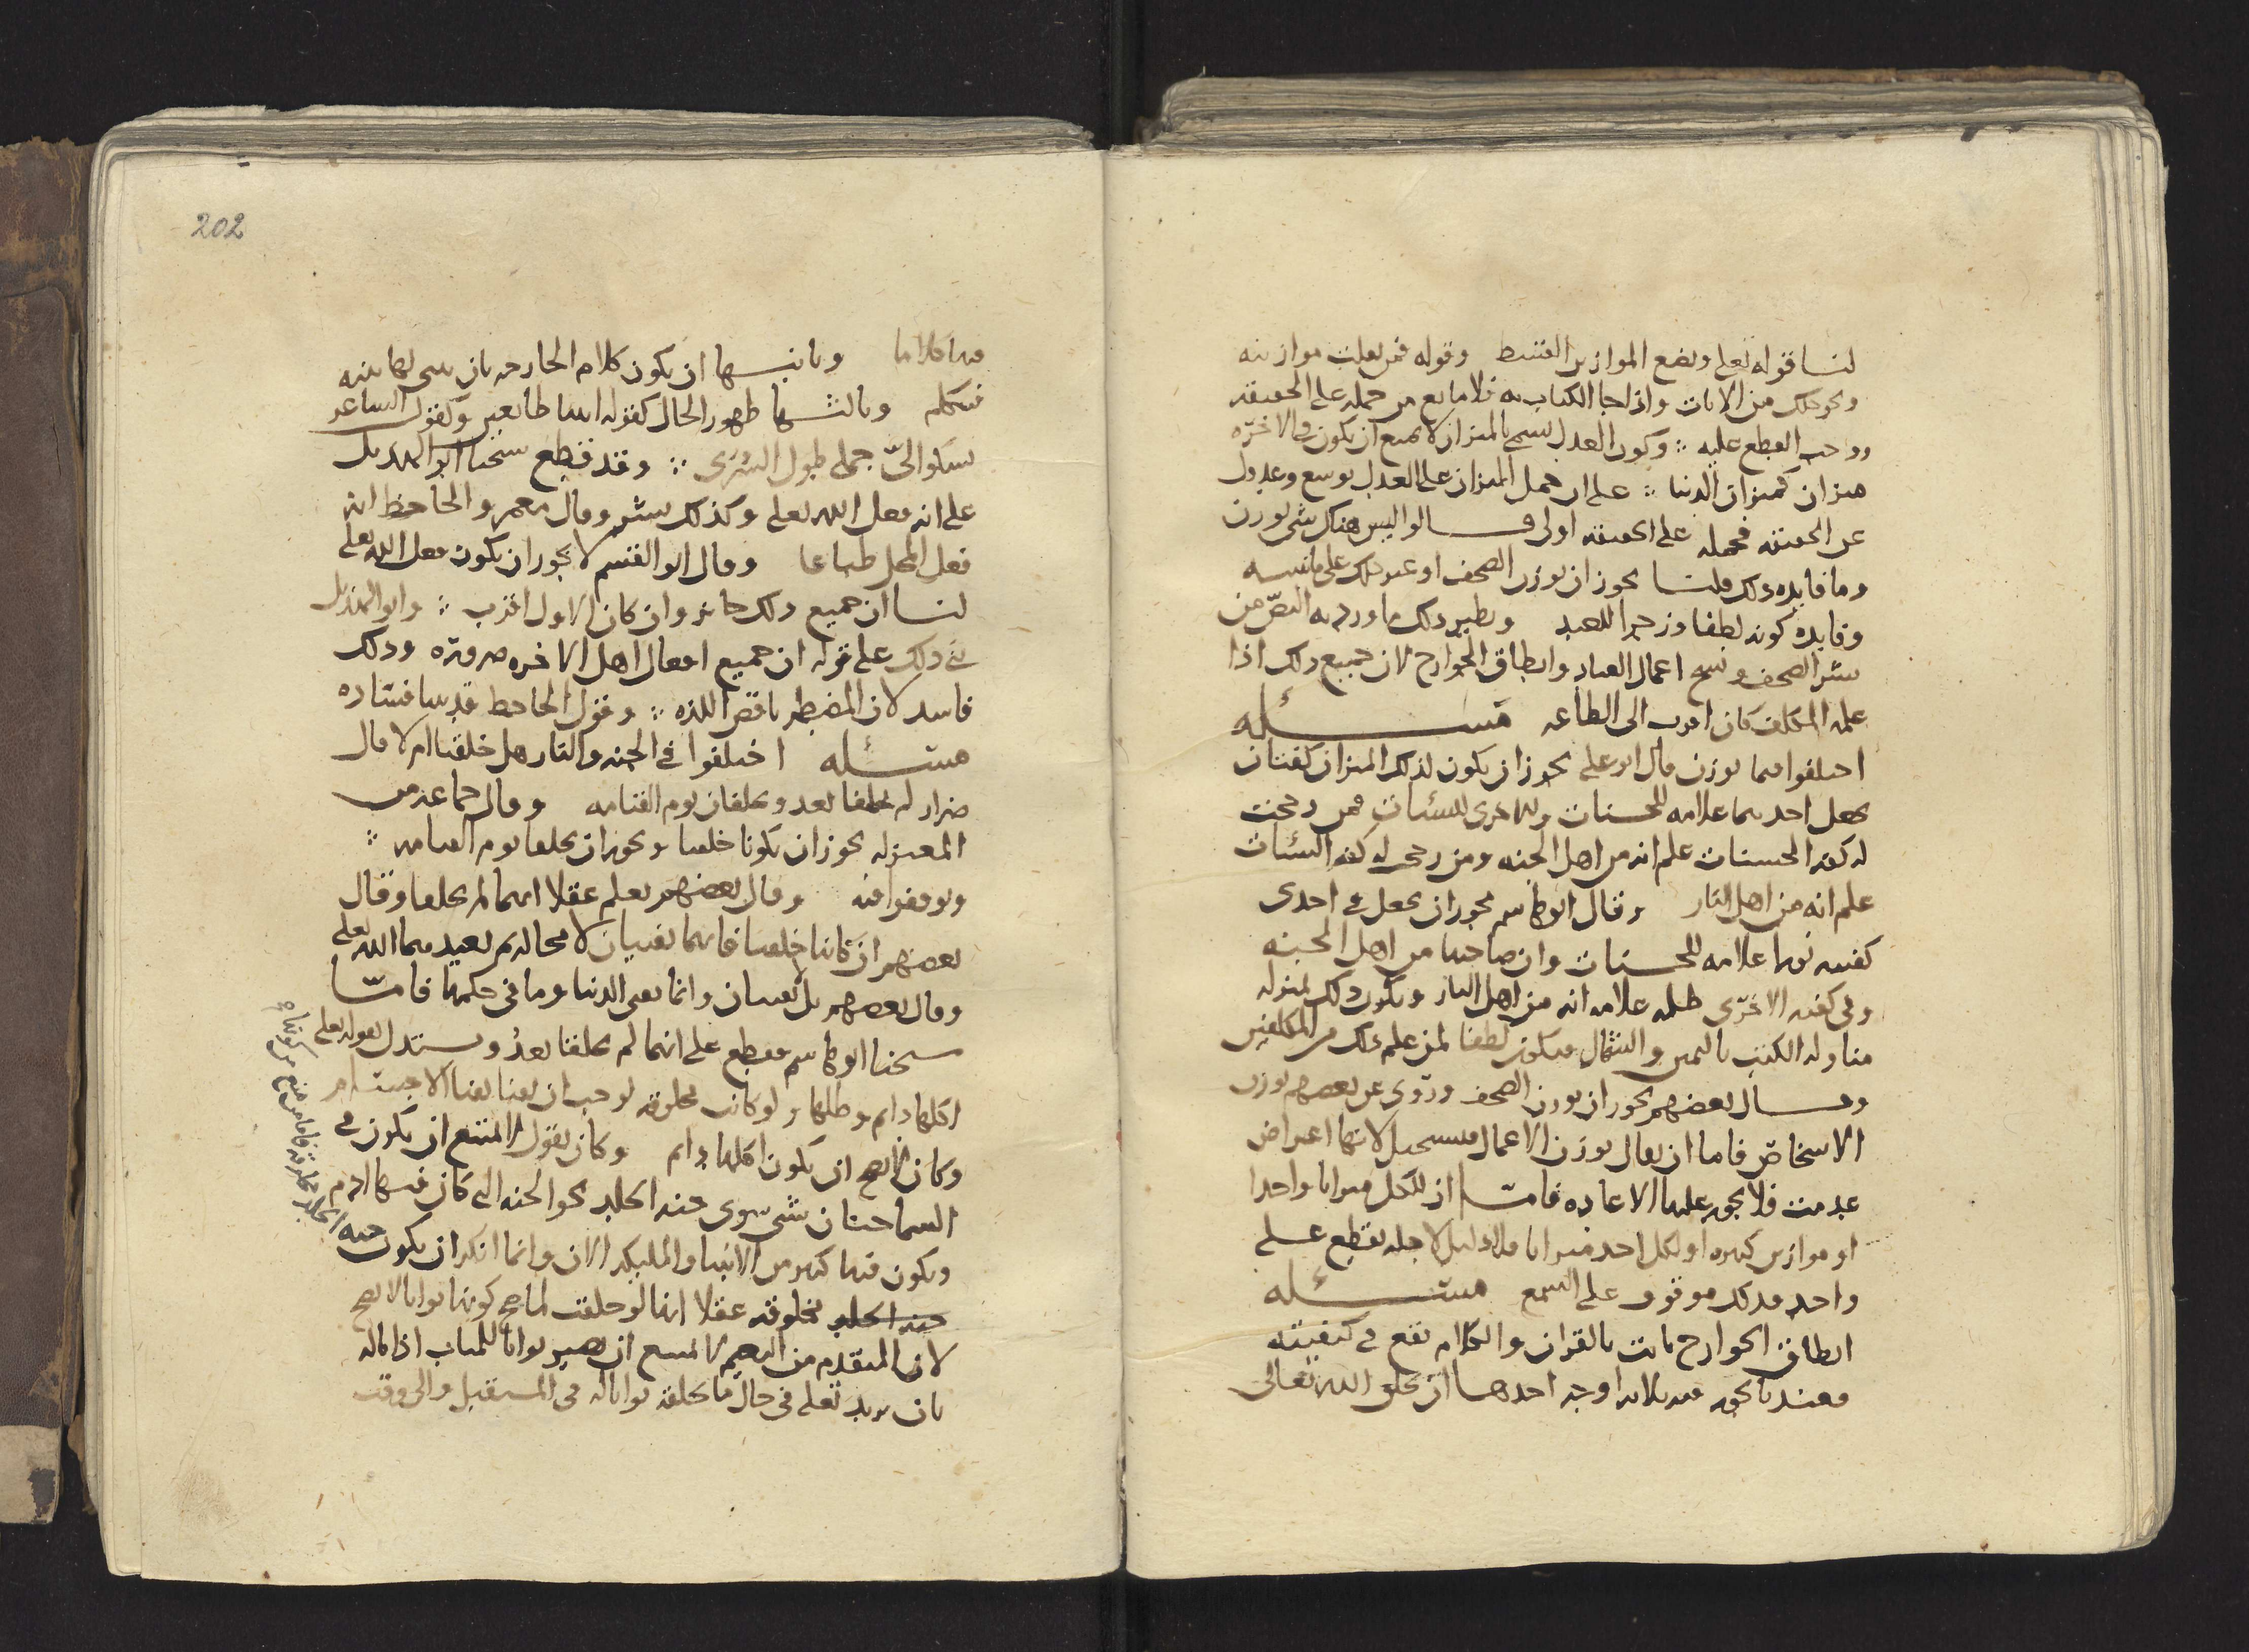 لنا قوله تعلى ونضع الموازين القسط وقوله فمن ثقلت موازينه
ونحو ذلك من الايات واذا جا الكتاب به فلا مانع من حمله على الحقيقة
وواجب القطع عليه وكون العدل يسمى بالميزان لا يمنع ان يكون في الاخرة
ميزان كميزان الدنيا على ان حمل الميزان على العدل توسع وعدول
عن الحقيقة فحمله على الحقيقة اولى قالوا اليس هناك شي يوزن
وما فايدة ذلك قلنا يجوز ان يوزن الصحف او غير ذلك على ما نبينه
وفايدته كونه لطفا وزجرا للعبد ونظير ذلك ما ورد به النص من
نشر الصحف ونسخ اعمال العباد وانطاق الجوارح لان جميع ذلك اذا
علمه المكلف كان اقرب الى الطاعة مسئله
اختلفوا فيما يوزن قال ابو علي يجوز ان يكون لذلك الميزان كفتان
يجعل احدهما علامه للحسنات والاخرى للسئات فمن رجحت
له كفة الحسنات علم انه من اهل الجنه ومن رجحت له كفه السئات
علم انه من اهل النار وقال ابو هاشم يجوز ان يجعل في احدى
كفتيه نورا علامه للحسنات وان صاحبها من اهل الجنه
وفي كفته الاخرى ظلمه علامه انه من اهل النار ويكون ذلك بمنزلة
مناولة الكتب باليمين والشمال فيكون لطفا لمن علم ذلك من المكلفين
وقال بعضهم يجوز ان يوزن الصحف وروي عن بعضهم يوزن
الاشخاص فاما ان يقال يوزن الاعمال فيستحيل لانها اعراض
عدمت فلا يجوز عليها الاعاده فاما ان للكل ميزانا واحدا
او موازين كثيره او لكل احد ميزانا فلا دليل لاجله نقطع على
واحد فذلك موقوف على السمع مسئله
انطاق الجوارح ثابت بالقران والكلام يقع في كيفيته
فعندنا يجوز فيه ثلاثه اوجه احدها ان يخلق الله تعالى
202
فيها كلاما وثانيها ان يكون كلام الجارحة بان يبني لها بنيه
فتتكلم وثالثها ظهور الحال كقوله اتينا طائعين وكقول الشاعر
يشكو الي جملي طول السرى وقد قطع شيخنا ابو الهذيل
على انه فعل الله تعلى وكذلك بشر وقال معمر والجاحظ انه
فعل المحل طباعا وقال ابو القسم لا يجوز ان يكون فعل الله تعلى
لنا ان جميع ذلك جائز وان كان الاول اقرب وابو الهذيل
بنى ذلك على قوله ان جميع افعال اهل الاخره ضروره وذلك
فاسد لان المضطر ناقص اللذه وقول الجاحظ قد بينا فساده
مسئله اختلفوا في الجنه والنار هل خلقتا ام لا قال
ضرار لم يخلقا بعد ويخلقان يوم القيامه وقال جماعة من
المعتزله يجوز ان يكونا خلقتا ويجوز ان يخلقا يوم القيامه
وتوقفوا فيه وقال بعضهم نعلم عقلا انهما لم يخلقا وقال
بعضهم ان كانتا خلقتا فانهما تفنيان لا محاله ثم يعيدهما الله تعلى
وقال بعضهم بل تبقيان وانما يفنى الدنيا وما في حكمها فامّا
شيخنا ابو هاشم فقطع على انهما لم يخلقا بعد ويستدل بقوله تعلى
اكلها دائم وظلها ولو كانت مخلوقه لوجب ان يفنا بفنا الاجسام
وكان لا يصح ان يكون اكلها دايم وكان يقول لا يمتنع ان يكون في
السما جنات شي سوى جنه الخلد نحو الجنه التي كان فيها ادم
ويكون فيها كثير من الانبيا والمليكه الان وانما انكر ان يكون جنه
مخلوقه عقلا انها لو خلقت لما صح كونها ثوابا لا يصح
لان المتقدم من النعيم لا يمتنع ان يصير ثوابا للمثاب اذا ناله
بان يريد تعلى في حال ما يخلقه ثوابا له في المستقبل والى وقت